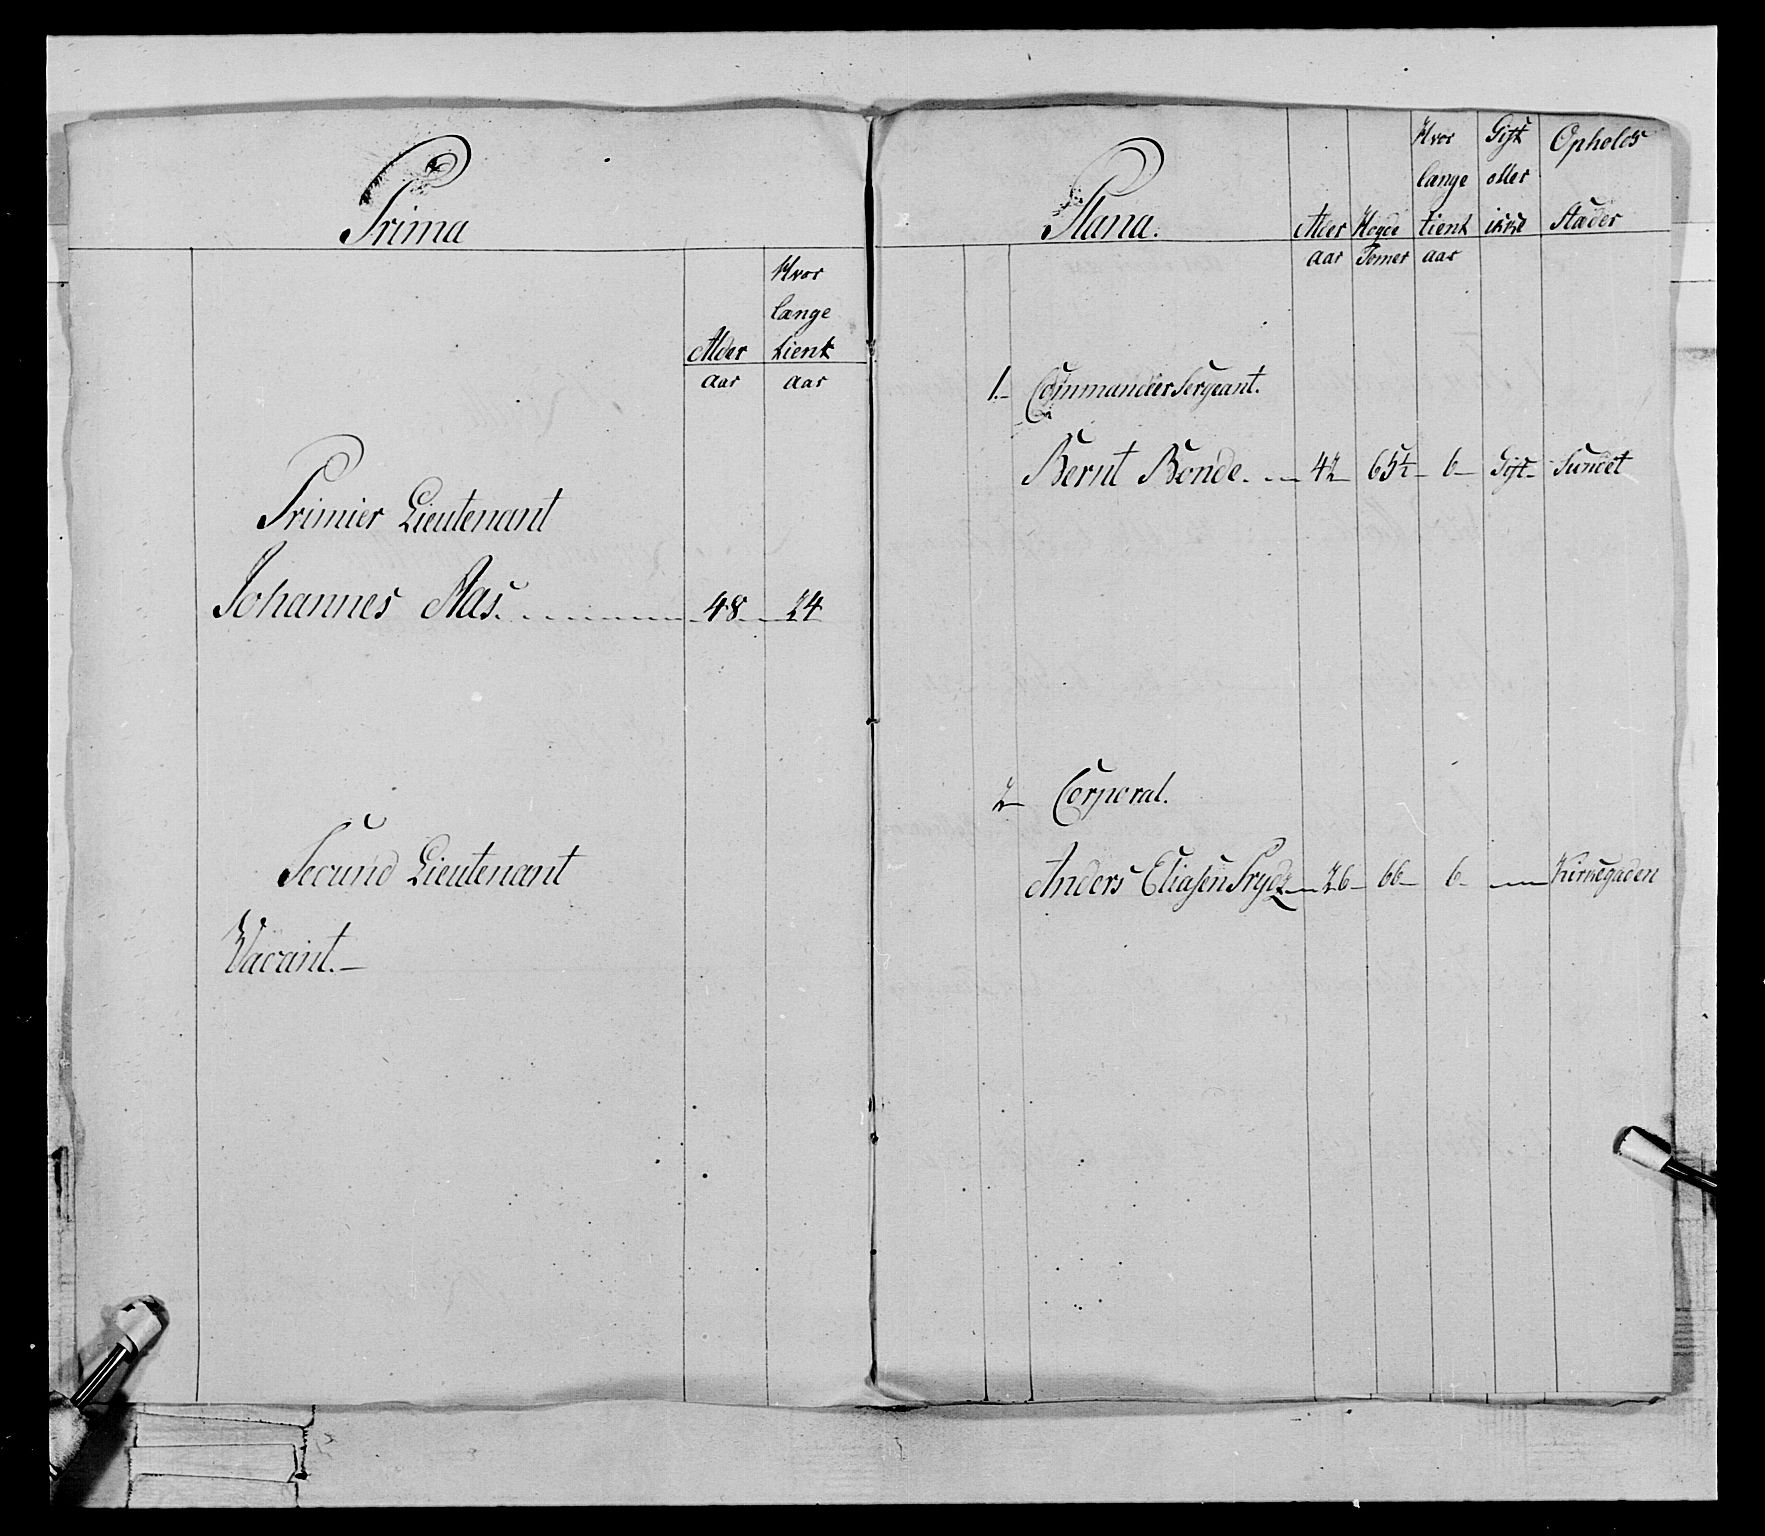 Prima
Hvor
længe
Alder tient
aar aar
Primier Lieutenant
Johannes Aas. 48 24
Secund Lieutenant
Vacant.
Plana.
Hvor Gift Opholds
længe eller
Alder Høyde tient ikke Stæder
aar Tomer aar
1. Commandeer Sergeant.
Bernt Bonde. 42 65½ 6 Gift Sundet
2 Corporal.
Anders Eliasen Prydz 26 66 6 Kirkegaden